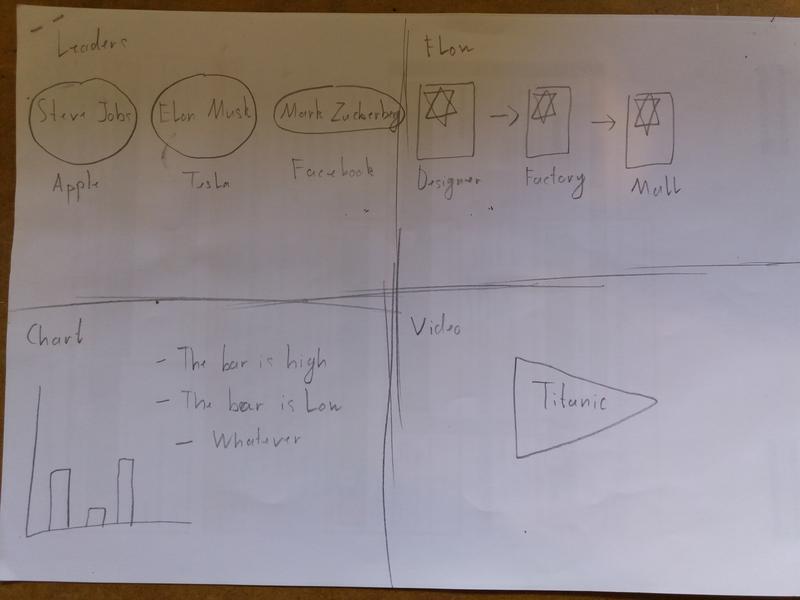 Leaders
Steve Jobs
Elon Musk
Mark Zuckerberg
Apple
Tesla
Facebook
Flow
Designer
Factory
Mall
Chart
- The bar is high
- The bar is Low
- Whatever
Video
Titanic